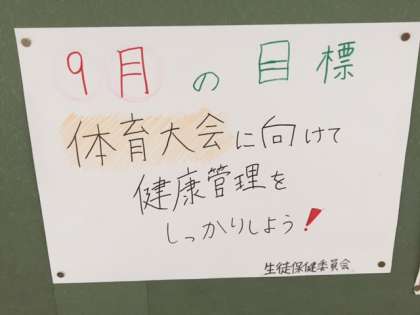 9月の目標
体育大会に向けて
健康管理を
しっかりしよう!
生徒保健委員会